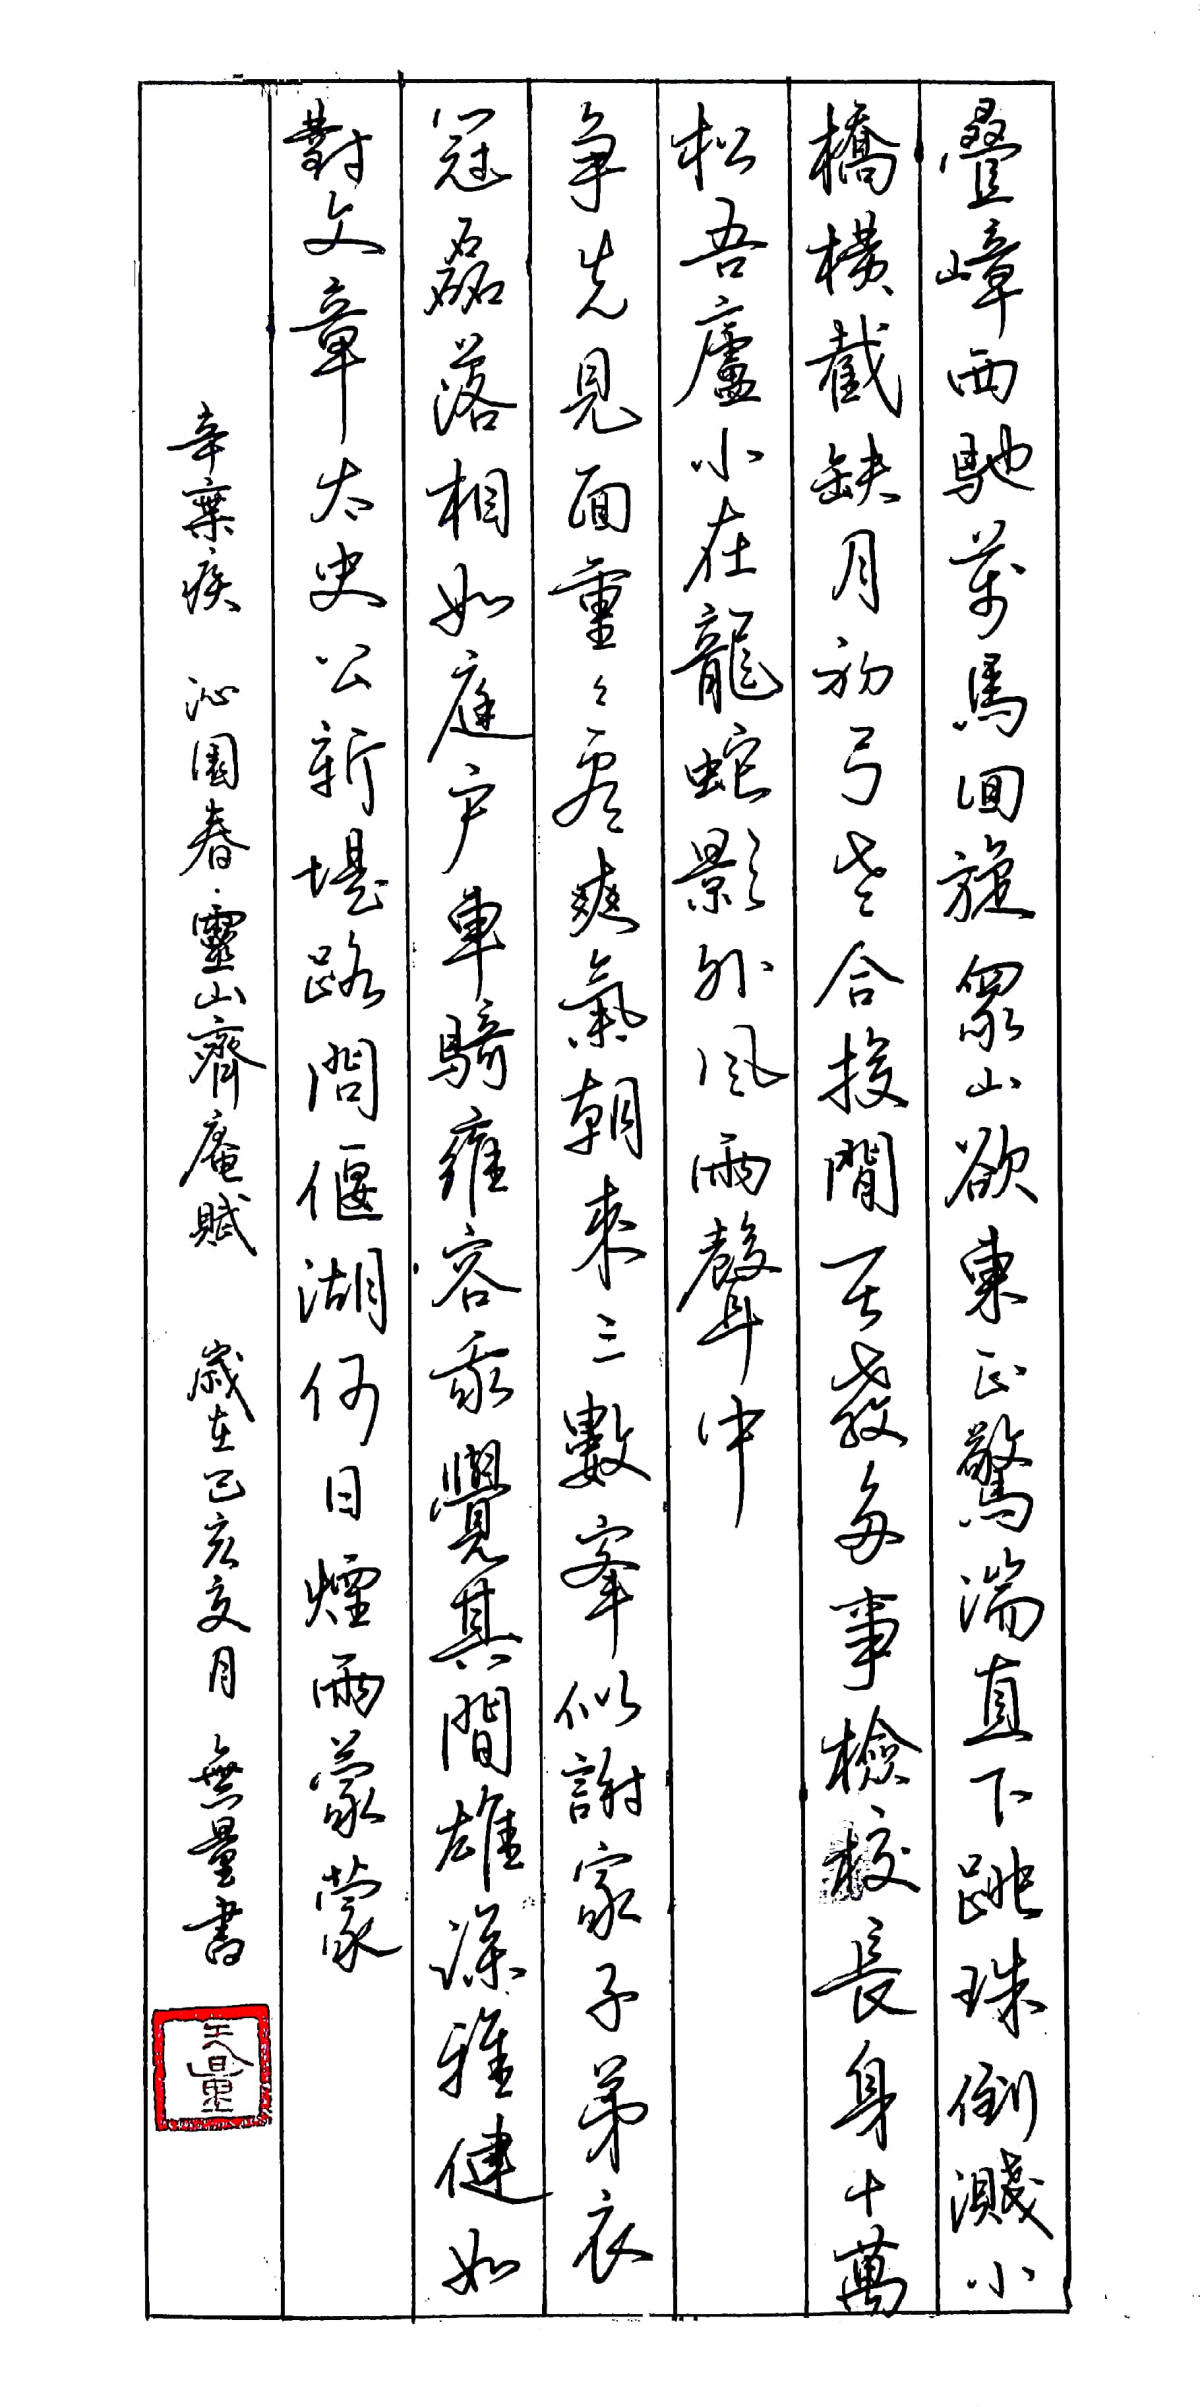 疊嶂西馳萬馬回旋眾山欲東正驚湍直下跳珠倒濺小
橋橫截缺月初弓老合投閒天教多事檢校長身十萬
松吾廬小在龍蛇影外風雨聲中
爭先見面重々看爽氣朝來三數峯似謝家子弟衣
冠磊落相如庭戶車騎雍容我覺其間雄深雅健如
對文章太史公新堤路問偃湖何日煙雨濛濛
辛棄疾 沁園春·靈山齊庵賦 歲在己亥交月 無量書
无量